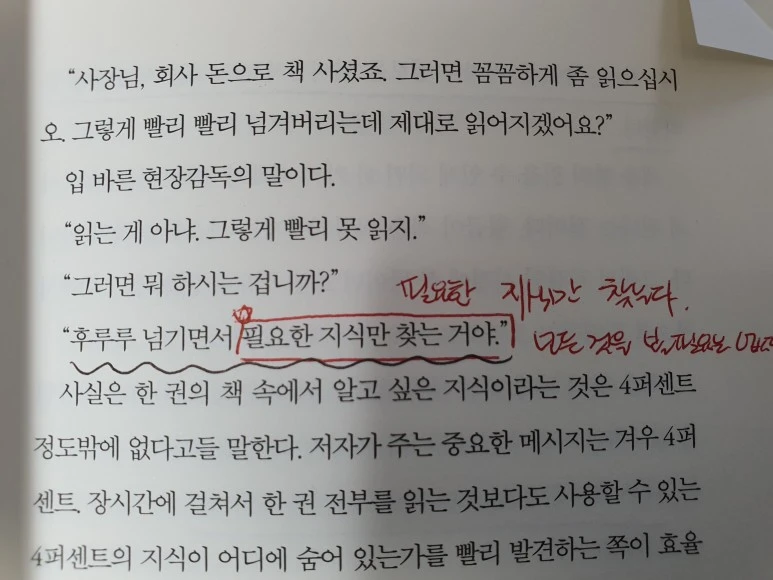 “사장님, 회사 돈으로 책 사셨죠. 그러면 꼼꼼하게 좀 읽으십시
오. 그렇게 빨리 빨리 넘겨버리는데 제대로 읽어지겠어요?”
입 바른 현장감독의 말이다.
“읽는 게 아냐. 그렇게 빨리 못 읽지.”
“그러면 뭐 하시는 겁니까?”
필요한 지식만 찾는다.
“후루루 넘기면서 필요한 지식만 찾는 거야.”
모든 것을 볼 필요는
사실은 한 권의 책 속에서 알고 싶은 지식이라는 것은 4퍼센트
정도밖에 없다고들 말한다. 저자가 주는 중요한 메시지는 겨우 4퍼
센트. 장시간에 걸쳐서 한 권 전부를 읽는 것보다도 사용할 수 있는
4퍼센트의 지식이 어디에 숨어 있는가를 빨리 발견하는 쪽이 효율